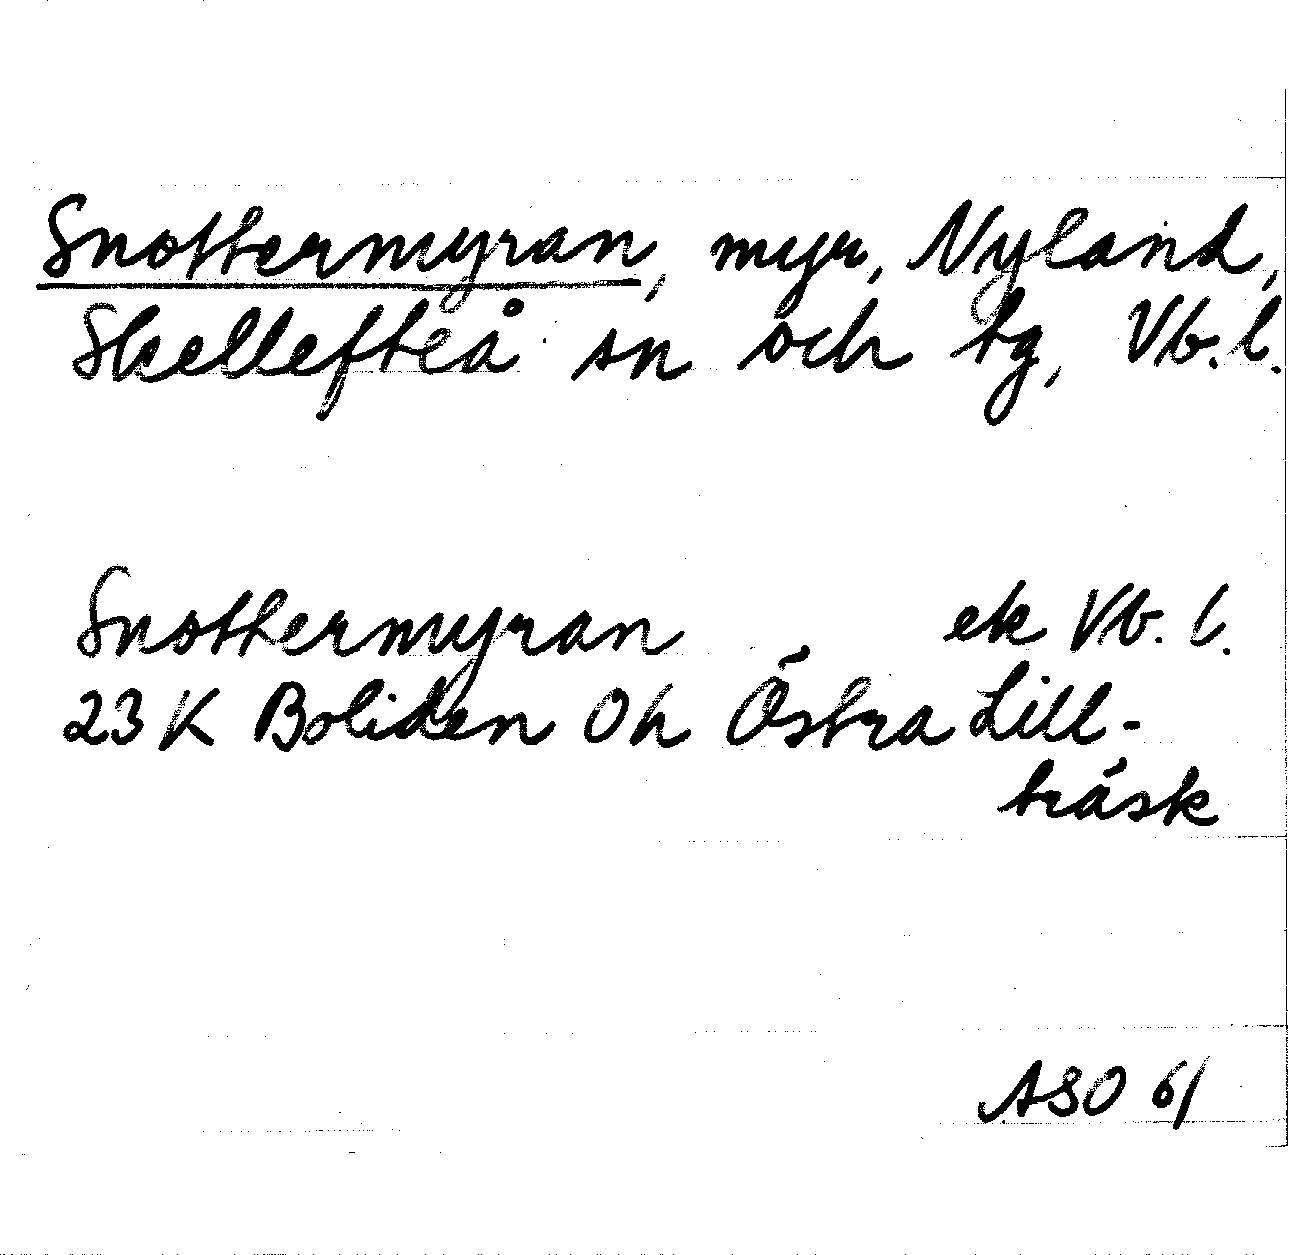 Snottermyran, myr, Nyland,
Skellefteå sn och tg, Vb.l.
Snottermyran ek Vb. l.
23 K Boliden 0h Östra Lill-
träsk
ASO 61